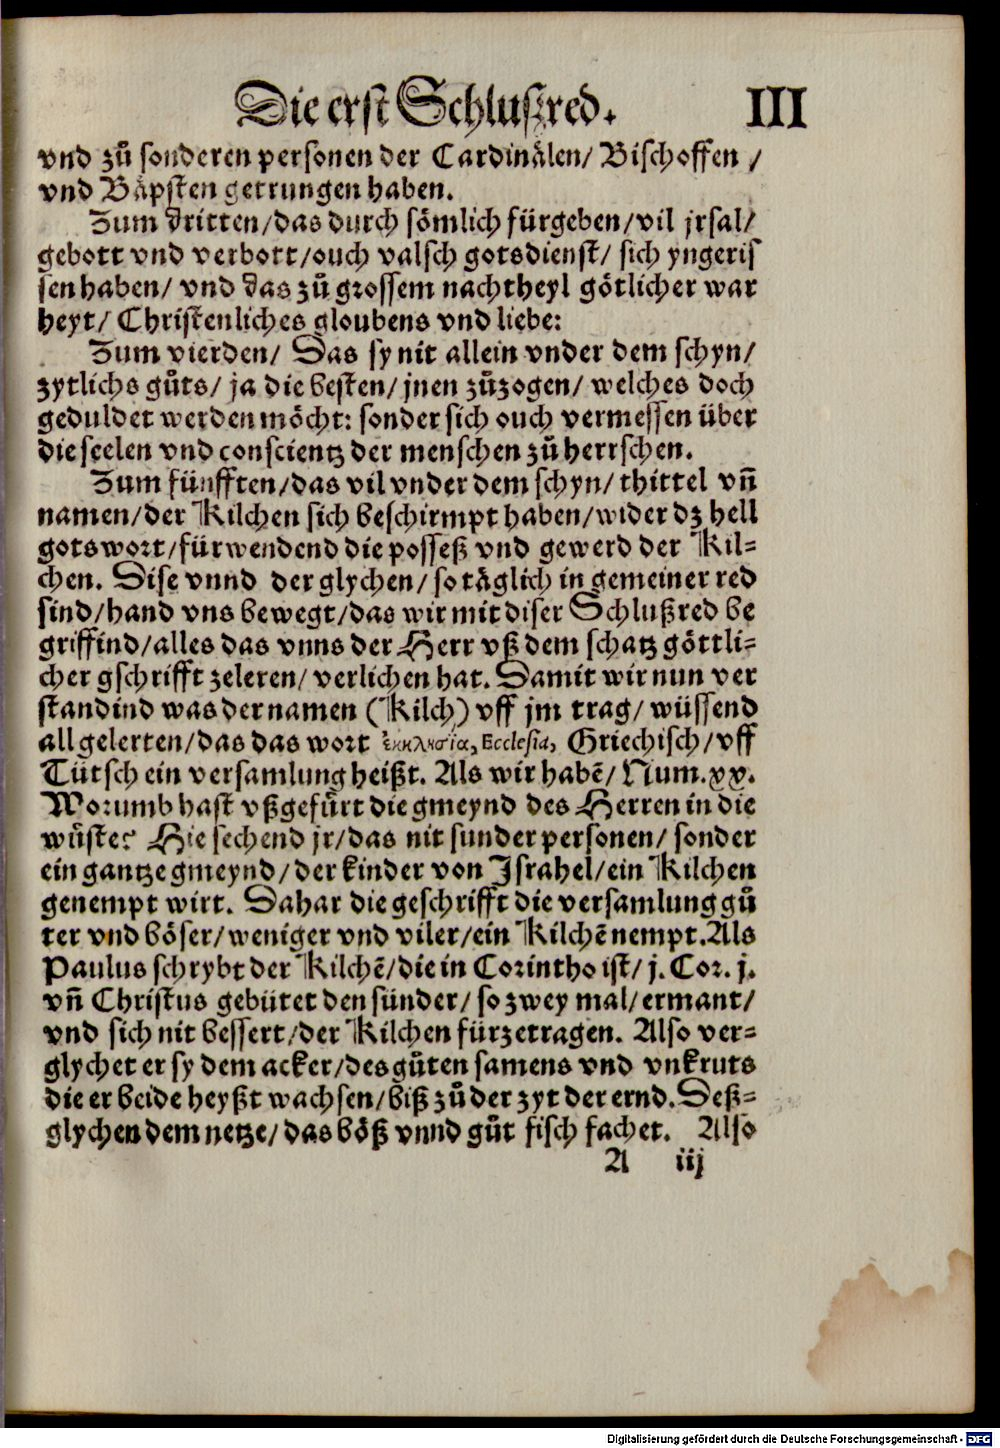 Die erst Schlußred. III
vnd zů sonderen personen der Cardinälen/ Bischoffen /
vnd Bäpsten getrungen haben.
Zum dritten/das durch sömlich fürgeben/vil jrsal/
gebott vnd verbott/ouch valsch gotsdienst/ sich yngeris
sen haben/ vnd das zů grossem nachtheyl götlicher war
heyt/ Christenliches gloubens vnd liebe:
Zum vierden/ Das sy nit allein vnder dem schyn/
zytlichs gůts/ ja die besten/jnen zůzogen/ welches doch
geduldet werden möcht: sonder sich ouch vermessen über
die seelen vnd conscientz der menschen zů herrschen.
Zum fünfften/das vil vnder dem schyn/ thittel vñ
namen/der Kilchen sich beschirmpt haben/wider dz hell
gotswort/fürwendend die posseß vnd gewerd der Kil-
chen. Dise vnnd der glychen/so täglich in gemeiner red
sind/hand vns bewegt/das wir mit diser Schlußred be
griffind/alles das vnns der Herr vß dem schatz göttli-
cher gschrifft zeleren/ verlichen hat. Damit wir nun ver
standind was der namen (Kilch) vff jm trag/ wüssend
all gelerten/das das wort ἐκκλησία, Ecclesia, Griechisch/vff
Tütsch ein versamlung heißt. Als wir habē/ Num.xx.
Worumb hast vßgefůrt die gmeynd des Herren in die
wůste? Hie sechend jr/das nit sunder personen/ sonder
ein gantze gmeynd/der kinder von Israhel/ein Kilchen
genempt wirt. Dahar die geschrifft die versamlung gů
ter vnd böser/weniger vnd viler/ein Kilchē nempt.Als
Paulus schrybt der Kilchē/die in Corintho ist/ j. Cor. j.
vñ Christus gebütet den sünder/ so zwey mal/ermant/
vnd sich nit bessert/der Kilchen fürzetragen. Also ver-
glychet er sy dem acker/des gůten samens vnd vnkruts
die er beide heyßt wachsen/biß zů der zyt der ernd. Deß-
glychen dem netze/das böß vnnd gůt fisch fachet. Also
A iij
Digitalisierung gefördert durch die Deutsche Forschungsgemeinschaft - DFG